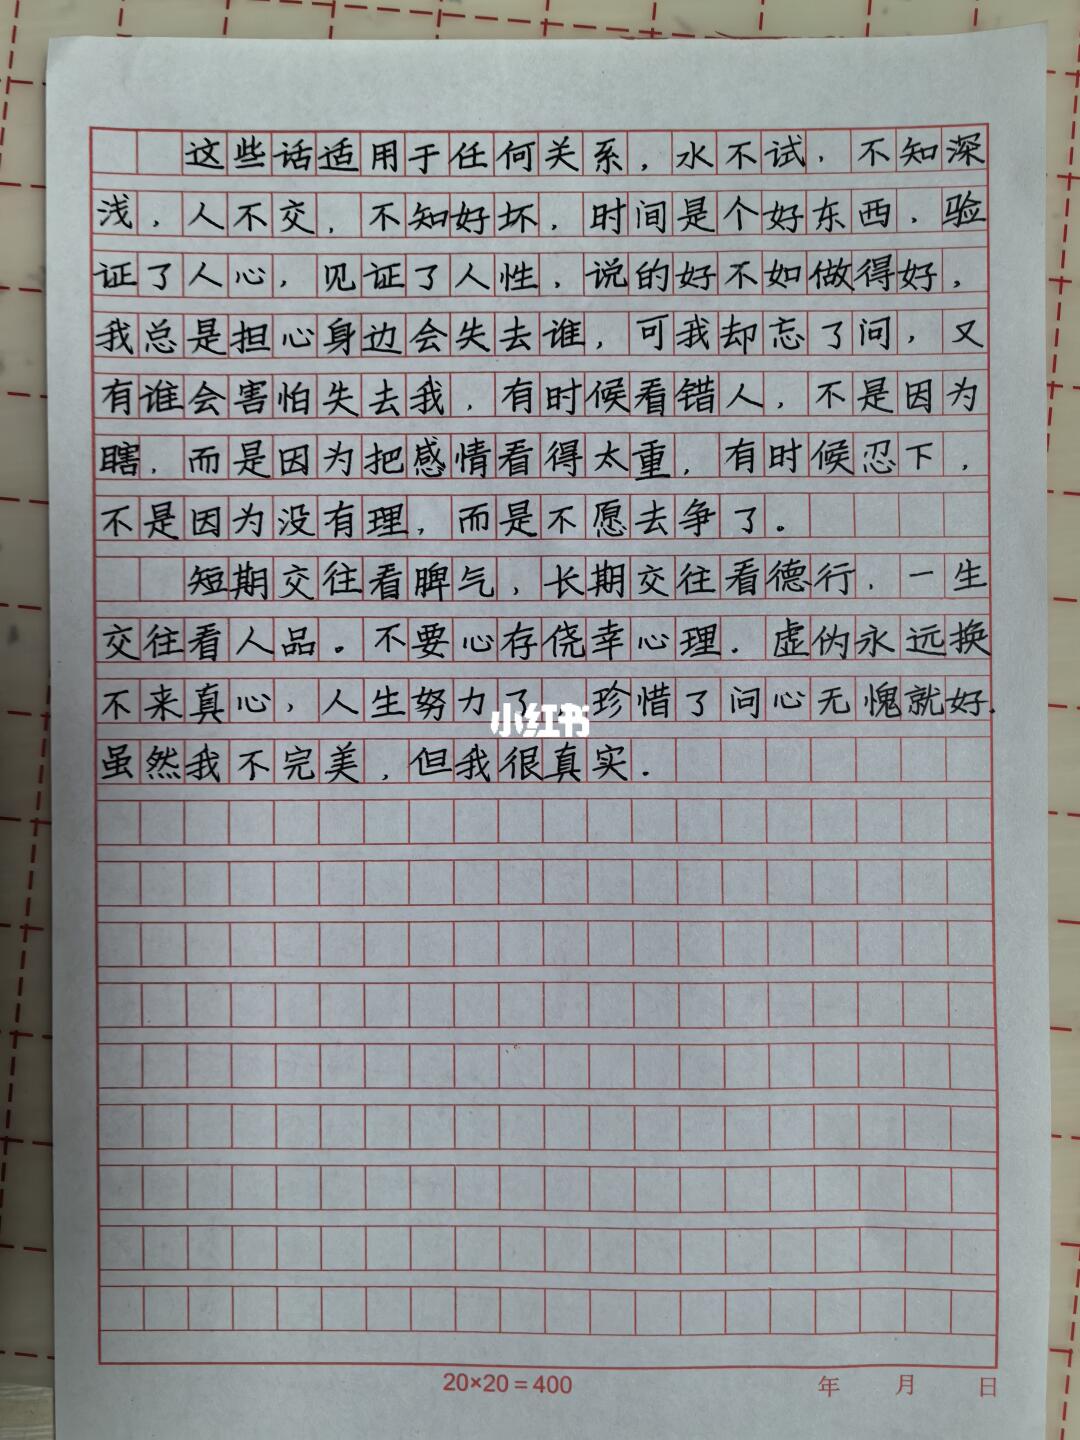 这些话适用于任何关系，水不试，不知深
浅，人不交，不知好坏，时间是个好东西，验
证了人心，见证了人性，说的好不如做得好，
我总是担心身边会失去谁，可我却忘了问，又
有谁会害怕失去我，有时候看错人，不是因为
瞎，而是因为把感情看得太重，有时候忍下，
不是因为没有理，而是不愿去争了。
短期交往看脾气，长期交往看德行，一生
交往看人品。不要心存侥幸心理．虚伪永远换
不来真心，人生努力了，珍惜了问心无愧就好．
虽然我不完美，但我很真实．
小红书
20×20＝400 年 月 日